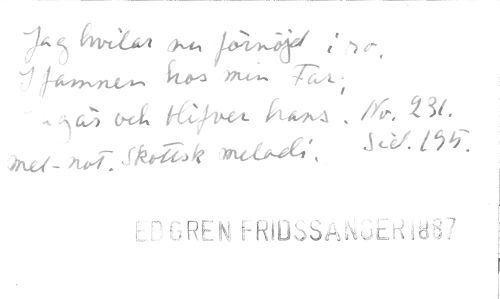 Jag hvilar nu förnöjd i ro,
I famnen hos min Far;
och blifver hans. No. 231.
mel-not. Skottsk melodi. Sid. 195.
EDGREN FRIDSSÅNGER 1887